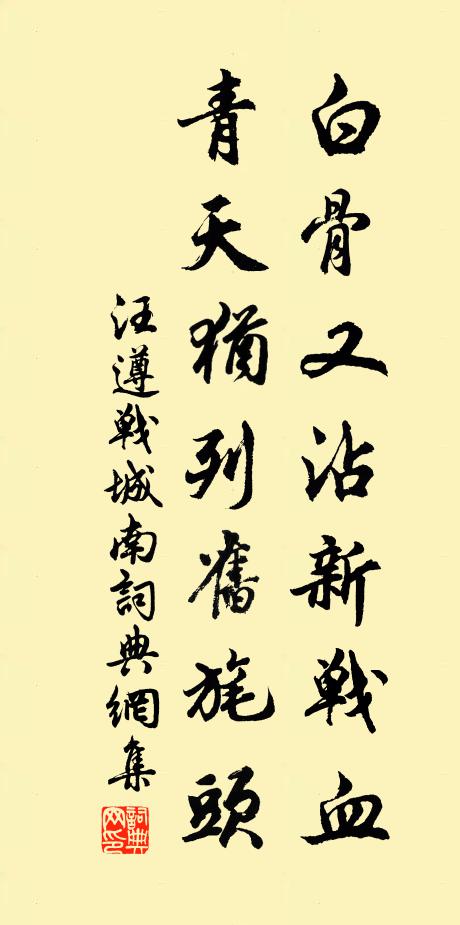 白骨又沾新戦血
青天猶列舊旄頭
汪遵戦城南詞典網集
詞典
网印